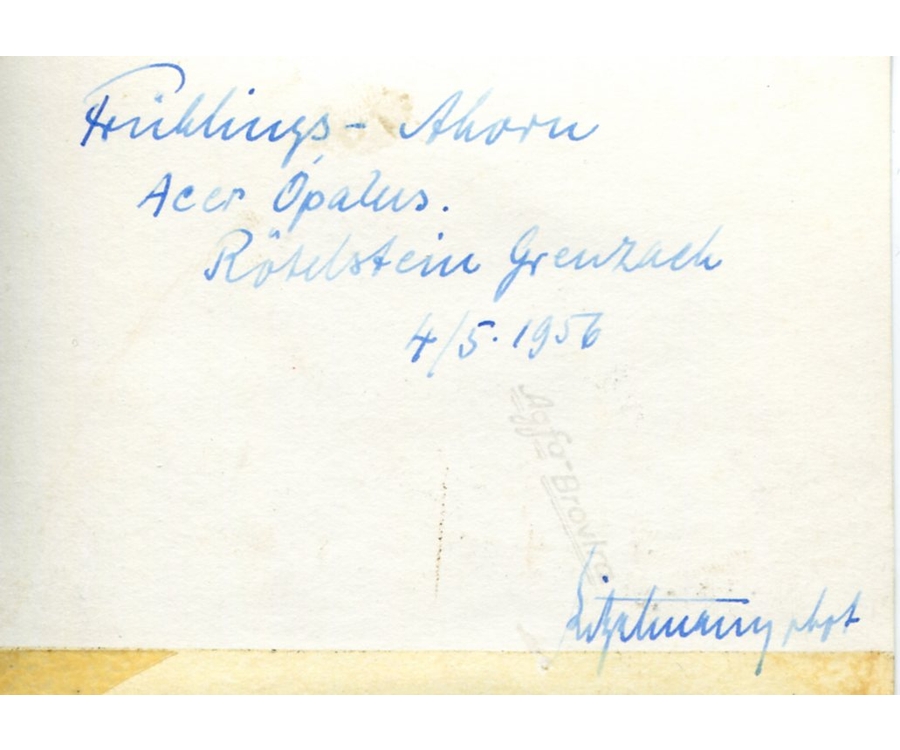 Frühlings- Ahorn
Acer Opalus.
Rötelstein Grenzach
4/5. 1956
Agfa-Brovira
Litzelmann phot